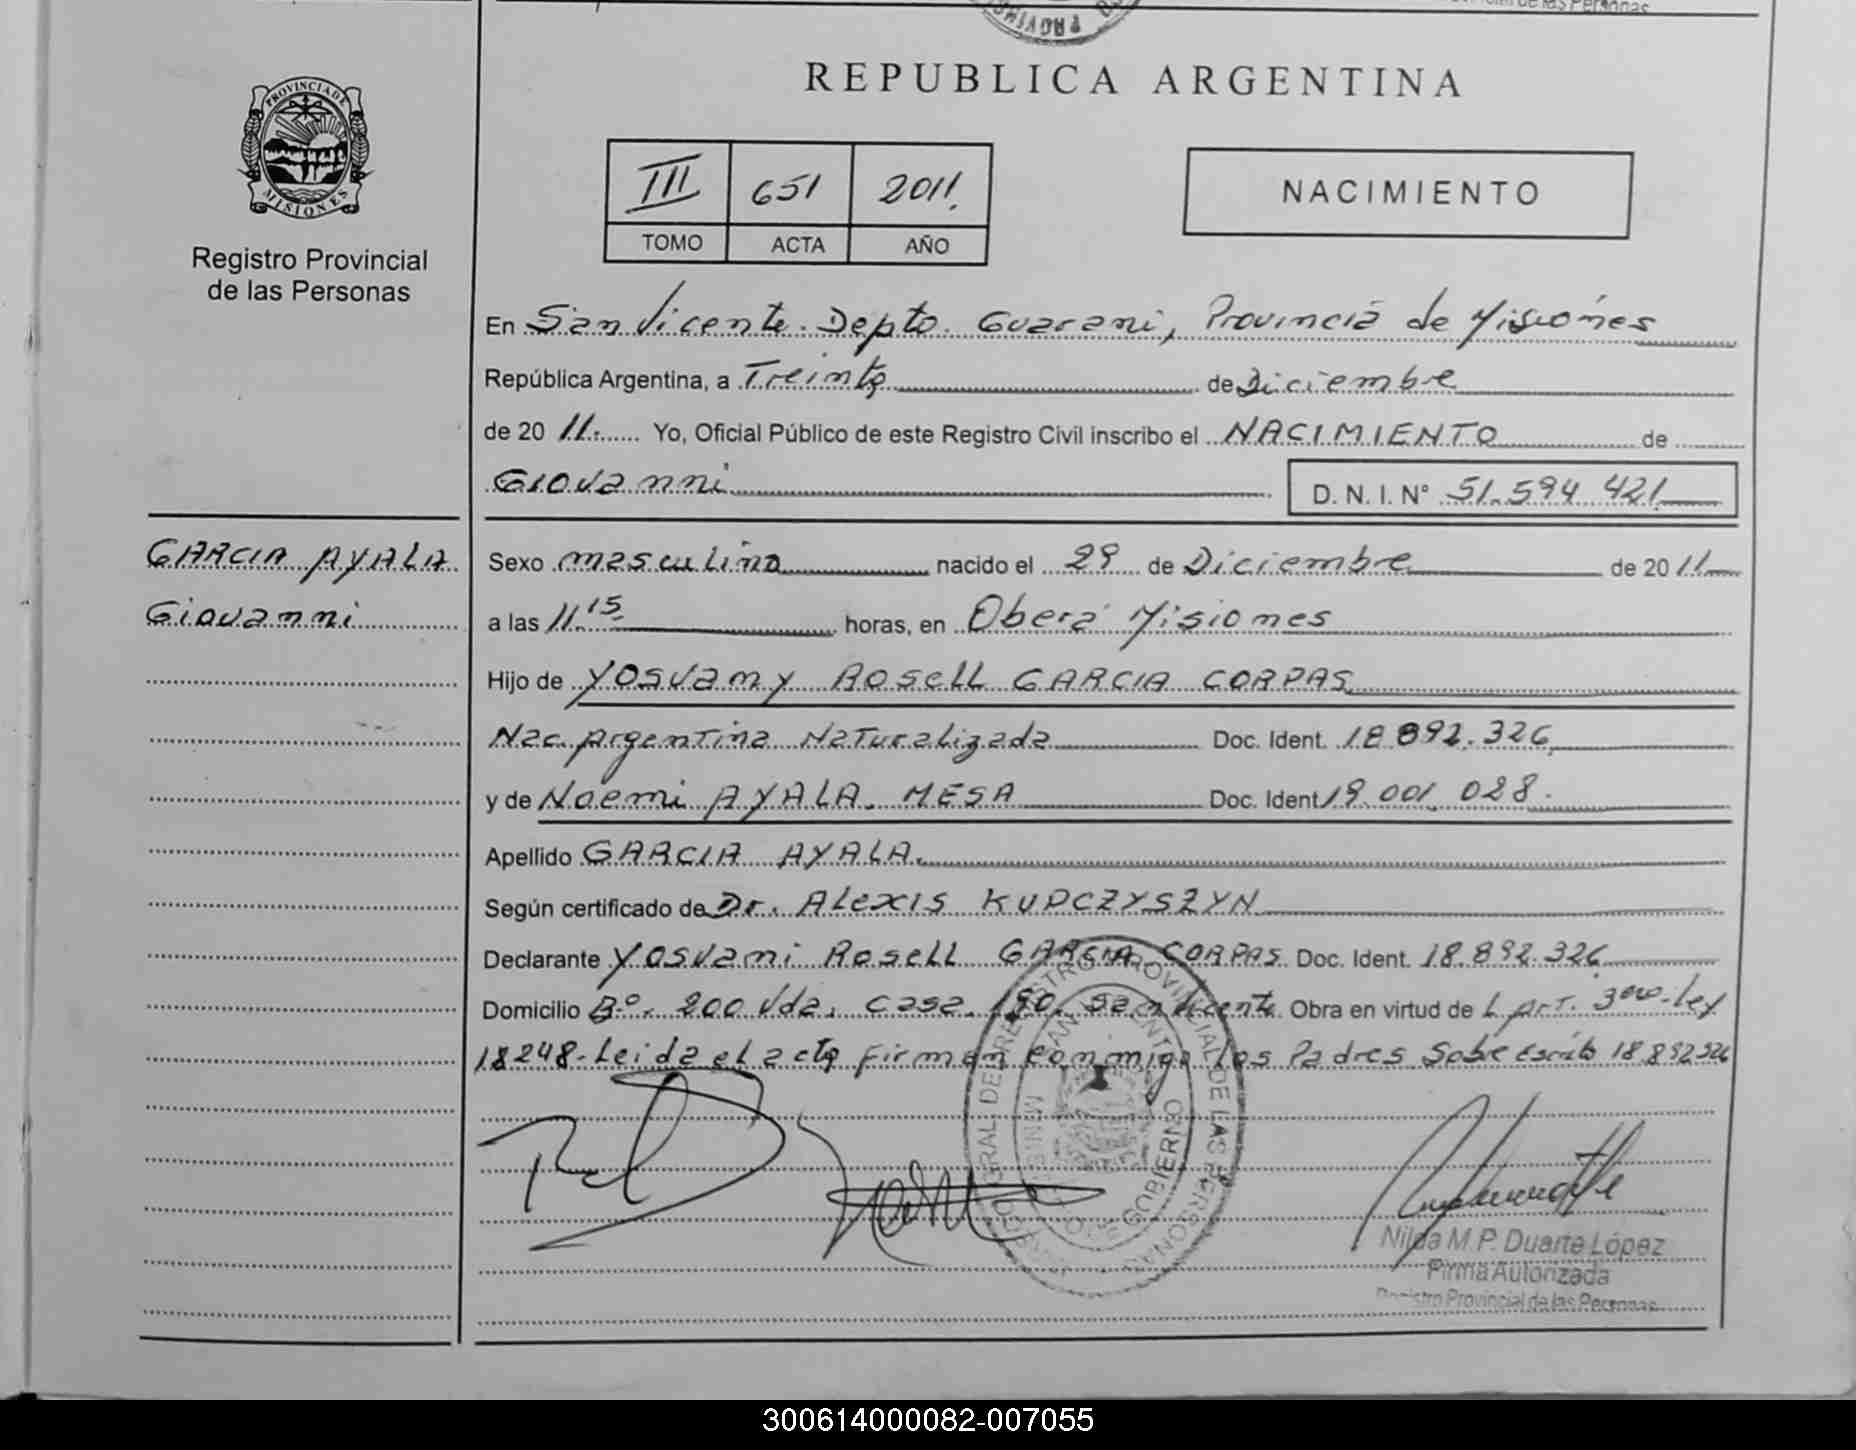 REPUBLICA ARGENTINA
PROVINCIA DE
MISIONES
Registro Provincial
de las Personas
III 651 2011.
TOMO ACTA AÑO
NACIMIENTO
En San Vicente. Depto. Guarani, Provincia de Misiones
República Argentina, a Treinta de Diciembre
de 20 11. Yo, Oficial Público de este Registro Civil inscribo el NACIMIENTO de
Giovanni D. N. I. N° 51.594 421
GARCIA AYALA
Giovanni
Sexo masculino nacido el 29 de Diciembre de 20 11
a las 11.15 horas, en Oberá Misiones
Hijo de YOSVAMY ROSELL GARCIA CORPAS
Nac. Argentina Naturalizada Doc. Ident. 18 892.326
y de Noemi AYALA. MESA Doc. Ident 19.001 028.
Apellido GARCIA AYALA.
Según certificado de Dr. ALEXIS KUPCZYSZYN
Declarante YOSVAMI ROSELL GARCIA CORPAS Doc. Ident. 18.892.326
Domicilio B°. 200 Vda. Casa. 190. San Vicente. Obra en virtud de L art. 3ero. Ley
18248. Leida el acta firman conmigo los Padres Sobre Escrito 18.892326
Nilda M.P. Duarte López
Firma Autorizada
Registro Provincial de las Personas
300614000082-007055